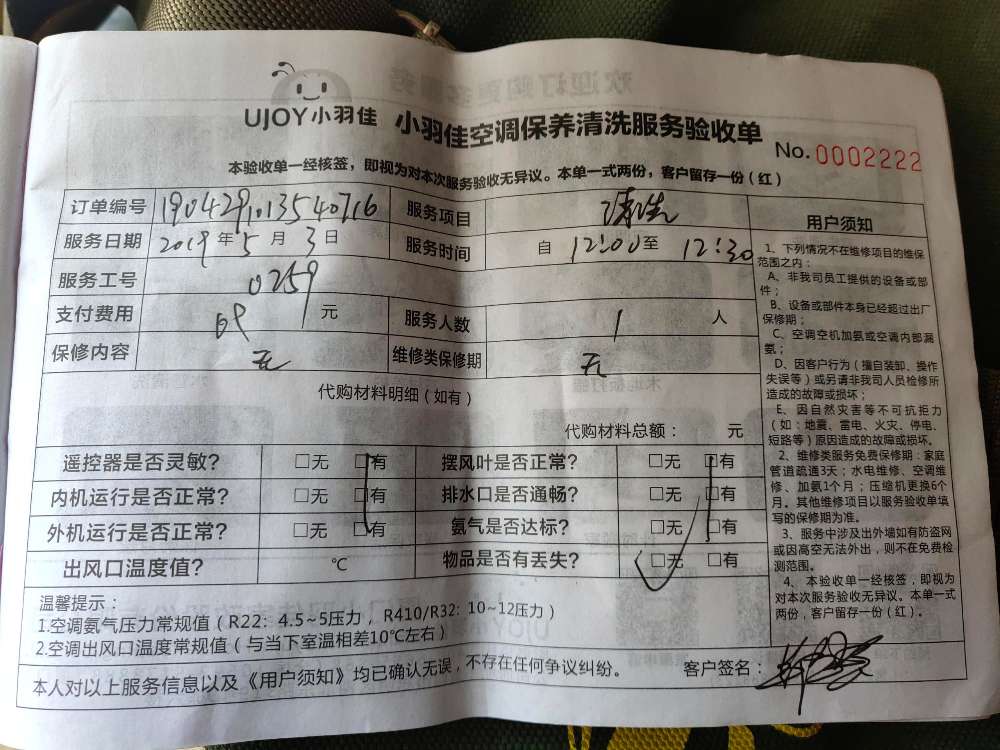 UJOY小羽佳 小羽佳空调保养清洗服务验收单
No. 0002222
本验收单一经核签，即视为对本次服务验收无异议。本单一式两份，客户留存一份（红）
订单编号 1904291013540716 服务项目 清洗
服务日期 2019年5月3日 服务时间 自12:00至12:30
服务工号 0259
支付费用 69元 服务人数 1人
保修内容 无 维修类保修期 无
代购材料明细（如有）
代购材料总额： 元
遥控器是否灵敏? □无 □有 摆风叶是否正常? □无 □有
内机运行是否正常? □无 □有 排水口是否通畅? □无 □有
外机运行是否正常? □无 □有 氨气是否达标? □无 □有
出风口温度值? ℃ 物品是否有丢失? □无 □有
温馨提示：
1.空调氨气压力常规值（R22: 4.5~5压力，R410/R32: 10~12压力）
2.空调出风口温度常规值（与当下室温相差10℃左右）
本人对以上服务信息以及《用户须知》均已确认无误，不存在任何争议纠纷。 客户签名：
用户须知
1、下列情况不在维修项目的维保
范围之内：
A、非我司员工提供的设备或部
件；
B、设备或部件本身已经超过出厂
保修期；
C、空调空机加氨或空调内部漏
氨；
D、因客户行为（擅自装卸、操作
失误等）或另请非我司人员检修所
造成的故障或损坏；
E、因自然灾害等不可抗拒力
（如：地震、雷电、火灾、停电、
短路等）原因造成的故障或损坏。
2、维修类服务免费保修期：家庭
管道疏通3天；水电维修、空调维
修、加氨1个月；压缩机更换6个
月。其他维修项目以服务验收单填
写的保修期为准。
3、服务中涉及出外墙如有防盗网
或因高空无法外出，则不在免费检
测范围。
4、本验收单一经核签，即视为
对本次服务验收无异议。本单一式
两份，客户留存一份（红）。